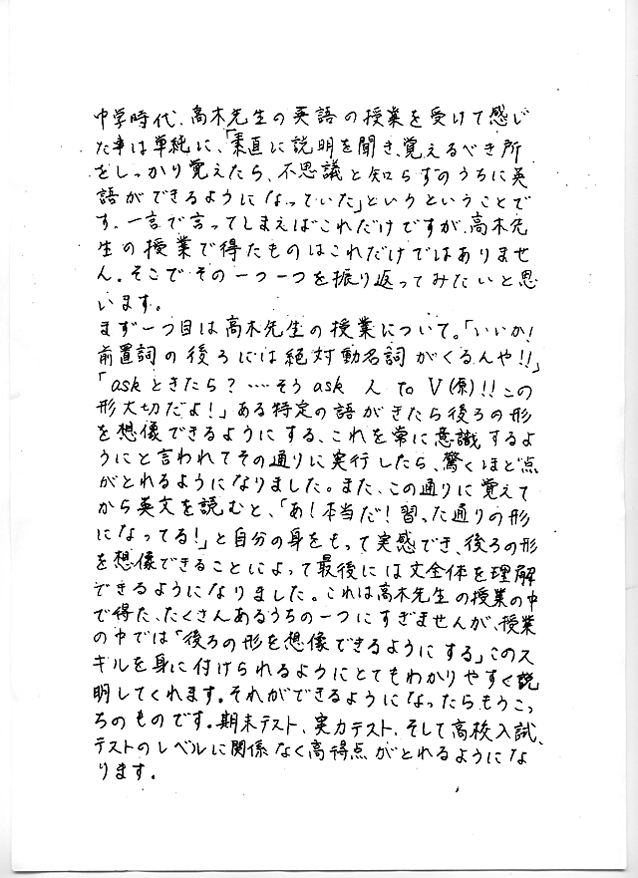 中学時代、高木先生の英語の授業を受けて感じ
た事は単純に、「素直に説明を聞き、覚えるべき所
をしっかり覚えたら、不思議と知らずのうちに英
語ができるようになっていた」というということで
す。一言で言ってしまえばこれだけですが、高木先
生の授業で得たものはこれだけではありませ
ん。そこでその一つ一つを振り返ってみたいと思
います。
まず一つ目は高木先生の授業について。「いいか!
前置詞の後ろには絶対動名詞がくるんや!!」
「askときたら?……そうask 人 to V(原)!!この
形大切だよ!」ある特定の語がきたら後ろの形
を想像できるようにする、これを常に意識するよ
うにと言われてその通りに実行したら、驚くほど点
がとれるようになりました。また、この通りに覚えて
から英文を読むと、「あ!本当だ!習った通りの形
になってる!」と自分の身をもって実感でき、後ろの形
を想像できることによって最後には文全体を理解
できるようになりました。これは高木先生の授業の中
で得た、たくさんあるうちの一つにすぎませんが、授業
の中では「後ろの形を想像できるようにする」このス
キルを身に付けられるようにとてもわかりやすく説
明してくれます。それができるようになったらもうこっ
ちのものです。期末テスト、実力テスト、そして高校入試、
テストのレベルに関係なく高得点がとれるようにな
ります。